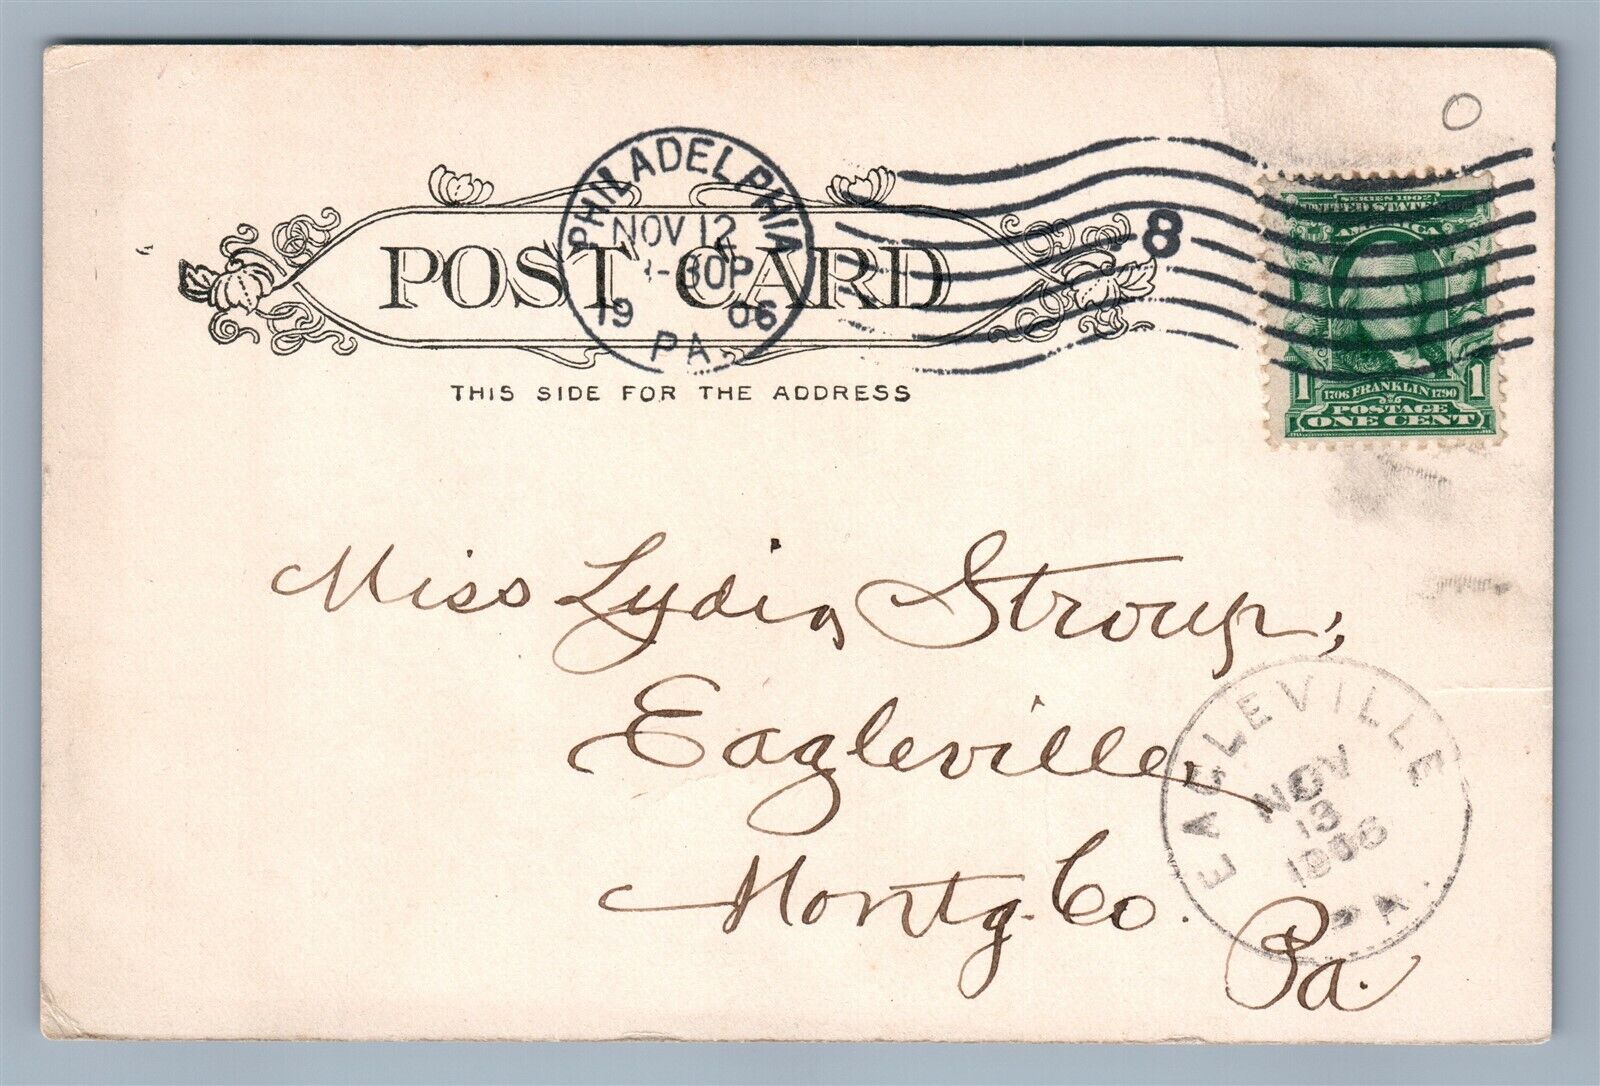 PHILADELPHIA
NOV 12
30P
1906
PA.
8
POST CARD
THIS SIDE FOR THE ADDRESS
SERIES 1902
UNITED STATES
AMERICA
1 1706 FRANKLIN 1790 1
POSTAGE
ONE CENT
Miss Lydia Stroup,
Eagleville
Montg. Co.
Pa.
EAGLEVILLE
NOV
13
1906
PA.